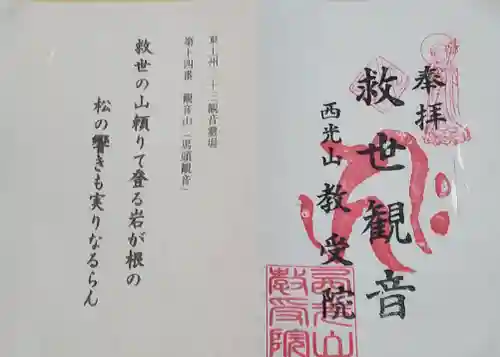 奉拝
救世観音
西光山 教受院
西光山
教受院
東上州 三十三観音霊場
第十四番 観音山「馬頭観音」
救世の山頼りて登る岩が根の
松の響きも実りなるらん